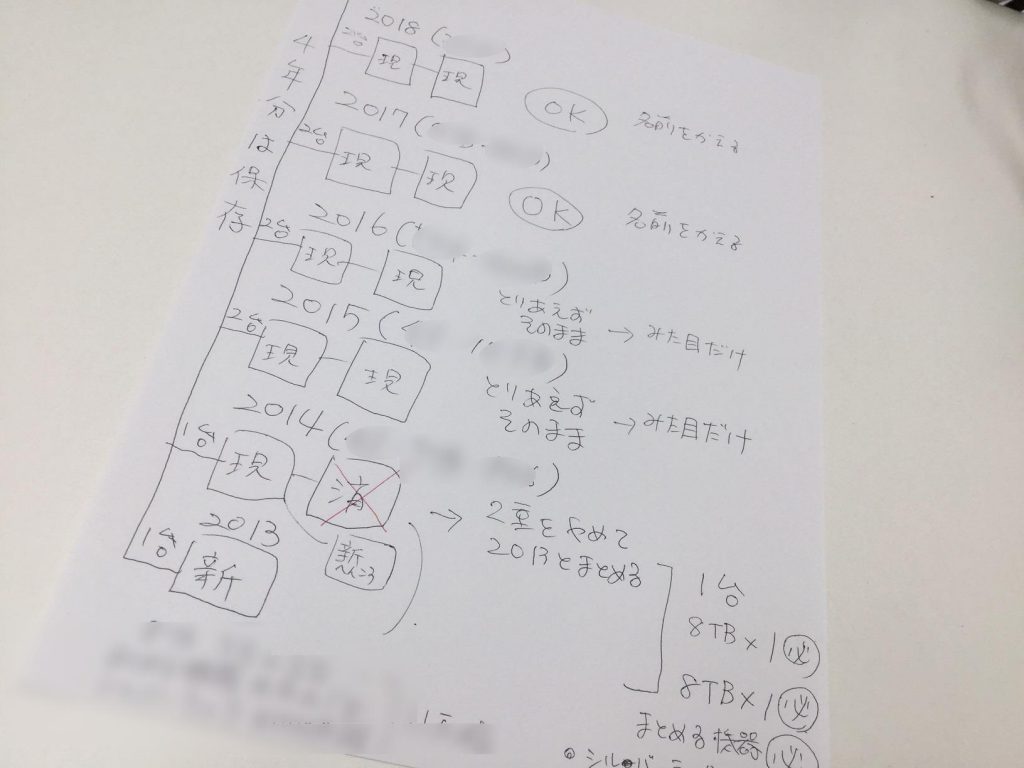 4年分は保存
2018 (
2台 現 現
OK 名前をかえる
2017 (
2台 現 現
OK 名前をかえる
2016 (
2台 現 現
とりあえず
そのまま → みた目だけ
2015 (
2台 現 現
とりあえず
そのまま → みた目だけ
2014 (
1台 現 済
→ 2重をやめて
2013とまとめる
2013
1台 新
新
1台
8TB×1 必
8TB×1 必
まとめる機器 必
シルバー